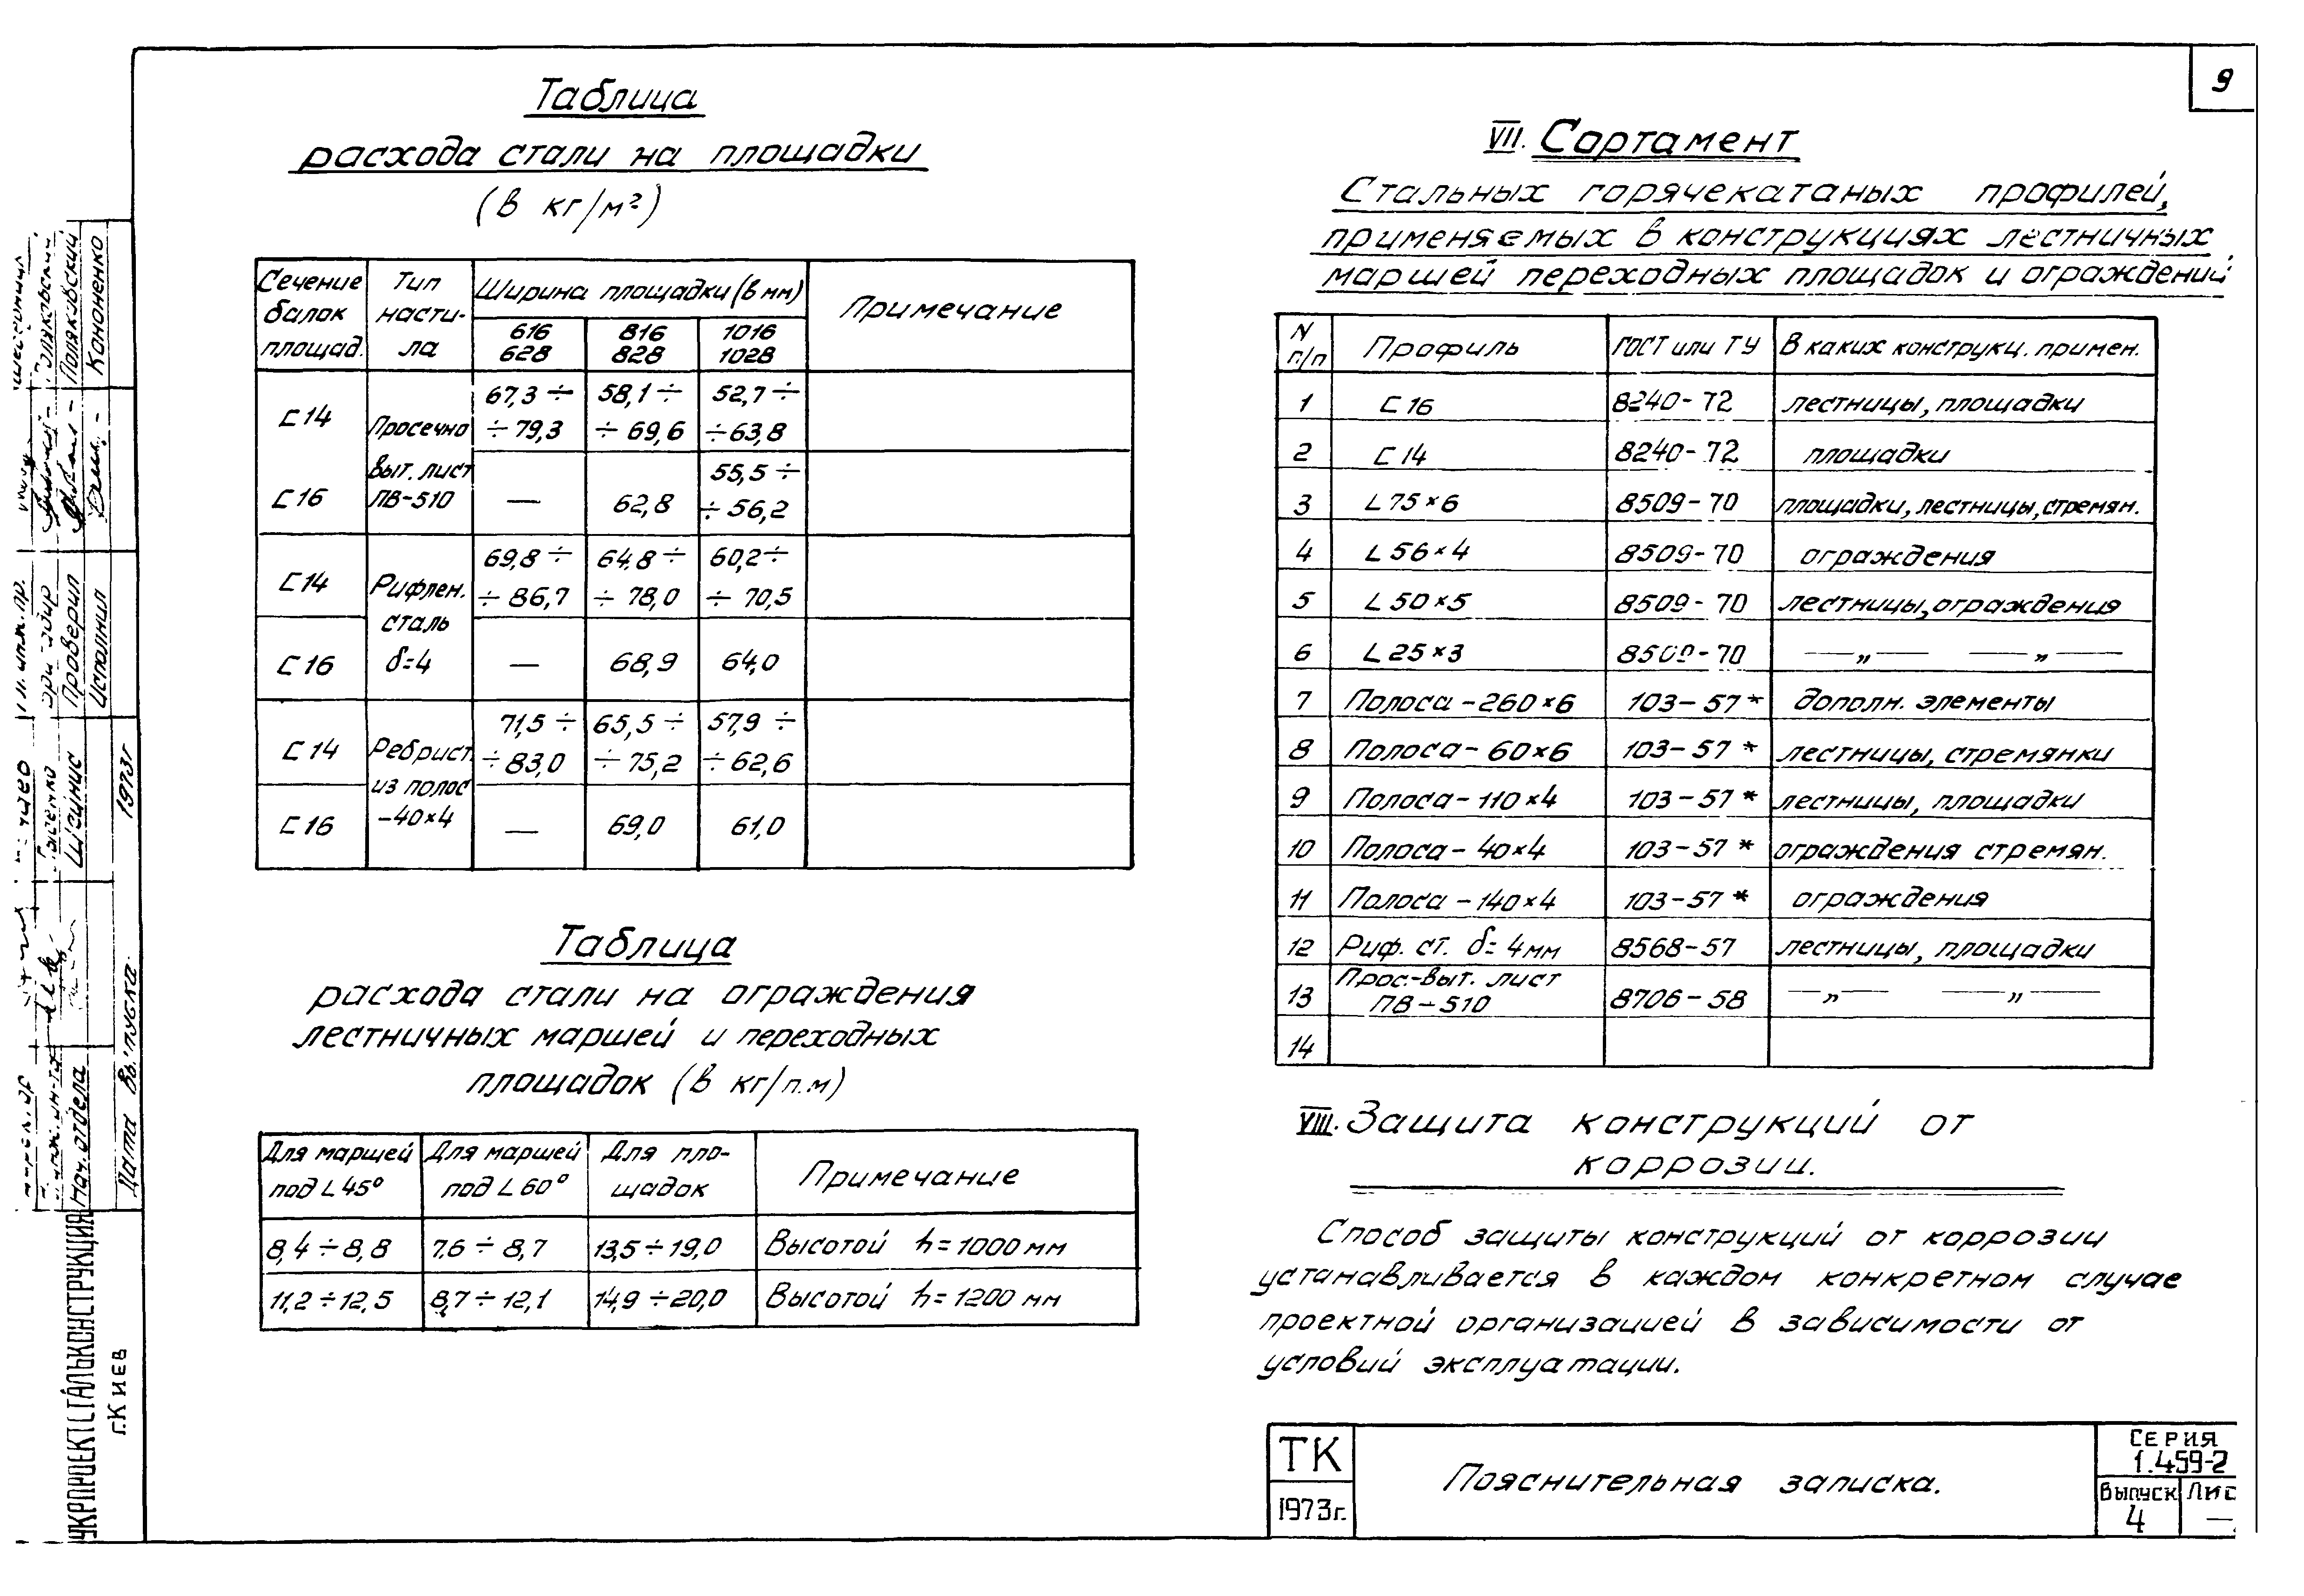 9
Таблица
расхода стали на площадки
(в кг/м²)
Сечение балок площад. | Тип насти-ла | Ширина площадки (в мм) | Примечание
616 628 | 816 828 | 1016 1028
[ 14 | Просечно выт. лист ПВ-510 | 67,3 ÷ ÷ 79,3 | 58,1 ÷ ÷ 69,6 | 52,7 ÷ ÷ 63,8
[ 16 | — | 62,8 | 55,5 ÷ ÷ 56,2
[ 14 | Рифлен. сталь δ=4 | 69,8 ÷ ÷ 86,7 | 64,8 ÷ ÷ 78,0 | 60,2 ÷ ÷ 70,5
[ 16 | — | 68,9 | 64,0
[ 14 | Ребрист. из полос -40×4 | 71,5 ÷ ÷ 83,0 | 65,5 ÷ ÷ 75,2 | 57,9 ÷ ÷ 62,6
[ 16 | — | 69,0 | 61,0
Таблица
расхода стали на ограждения
лестничных маршей и переходных
площадок (в кг/п.м)
Для маршей под ∟45° | Для маршей под ∟60° | Для пло-щадок | Примечание
8,4 ÷ 8,8 | 7,6 ÷ 8,7 | 13,5 ÷ 19,0 | Высотой h = 1000 мм
11,2 ÷ 12,5 | 8,7 ÷ 12,1 | 14,9 ÷ 20,0 | Высотой h = 1200 мм
VII. Сортамент
Стальных горячекатаных профилей,
применяемых в конструкциях лестничных
маршей переходных площадок и ограждений
N п/п | Профиль | ГОСТ или ТУ | В каких конструкц. примен.
1 | [ 16 | 8240-72 | лестницы, площадки
2 | [ 14 | 8240-72 | площадки
3 | L 75×6 | 8509-70 | площадки, лестницы, стремян.
4 | L 56×4 | 8509-70 | ограждения
5 | L 50×5 | 8509-70 | лестницы, ограждения
6 | L 25×3 | 8509-70 | —„— —„—
7 | Полоса -260×6 | 103-57* | дополн. элементы
8 | Полоса - 60×6 | 103-57* | лестницы, стремянки
9 | Полоса - 110×4 | 103-57* | лестницы, площадки
10 | Полоса - 40×4 | 103-57* | ограждения стремян.
11 | Полоса - 140×4 | 103-57* | ограждения
12 | Риф. ст. δ= 4мм | 8568-57 | лестницы, площадки
13 | Прос.-выт. лист ПВ-510 | 8706-58 | —„— —„—
14
VIII. Защита конструкций от
коррозии.
Способ защиты конструкций от коррозии
устанавливается в каждом конкретном случае
проектной организацией в зависимости от
условий эксплуатации.
ТК
1973г.
Пояснительная записка.
Серия
1.459-2
Выпуск
4
—
УКРПРОЕКТСТАЛЬКОНСТРУКЦИЯ
г.Киев
Нач. отдела
Дата выпуска
1973г
Проверил
Исполнил
Поляковский
Кононенко